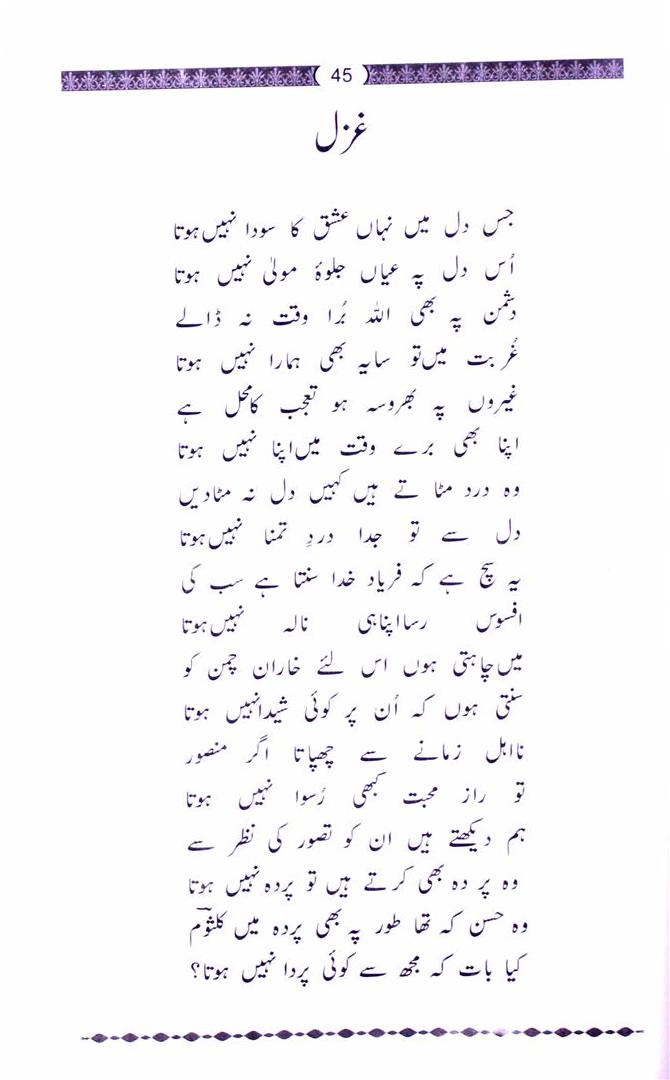 45
غزل
جس دل میں نہاں عشق کا سودا نہیں ہوتا
اُس دل پہ عیاں جلوۂ مولیٰ نہیں ہوتا
دشمن پہ بھی اللہ بُرا وقت نہ ڈالے
غُربت میں تو سایہ بھی ہمارا نہیں ہوتا
غیروں پہ بھروسہ ہو تعجب کا محل ہے
اپنا بھی برے وقت میں اپنا نہیں ہوتا
وہ درد مٹا تے ہیں کہیں دل نہ مٹادیں
دل سے تو جدا دردِ تمنا نہیں ہوتا
یہ سچ ہے کہ فریاد خدا سنتا ہے سب کی
افسوس رسا اپنا ہی نالہ نہیں ہوتا
میں چاہتی ہوں اس لئے خاران چمن کو
سنتی ہوں کہ اُن پر کوئی شیدا نہیں ہوتا
نااہل زمانے سے چھپاتا اگر منصور
تو راز محبت کبھی رُسوا نہیں ہوتا
ہم دیکھتے ہیں ان کو تصور کی نظر سے
وہ پر دہ بھی کرتے ہیں تو پردہ نہیں ہوتا
وہ حسن کہ تھا طور پہ بھی پردہ میں کلثوم
کیا بات کہ مجھ سے کوئی پردا نہیں ہوتا؟